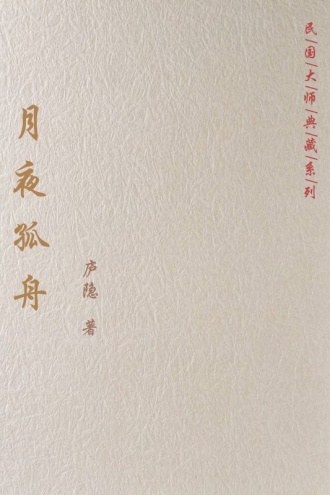 民国大师典藏系列
月夜孤舟
庐隐 著